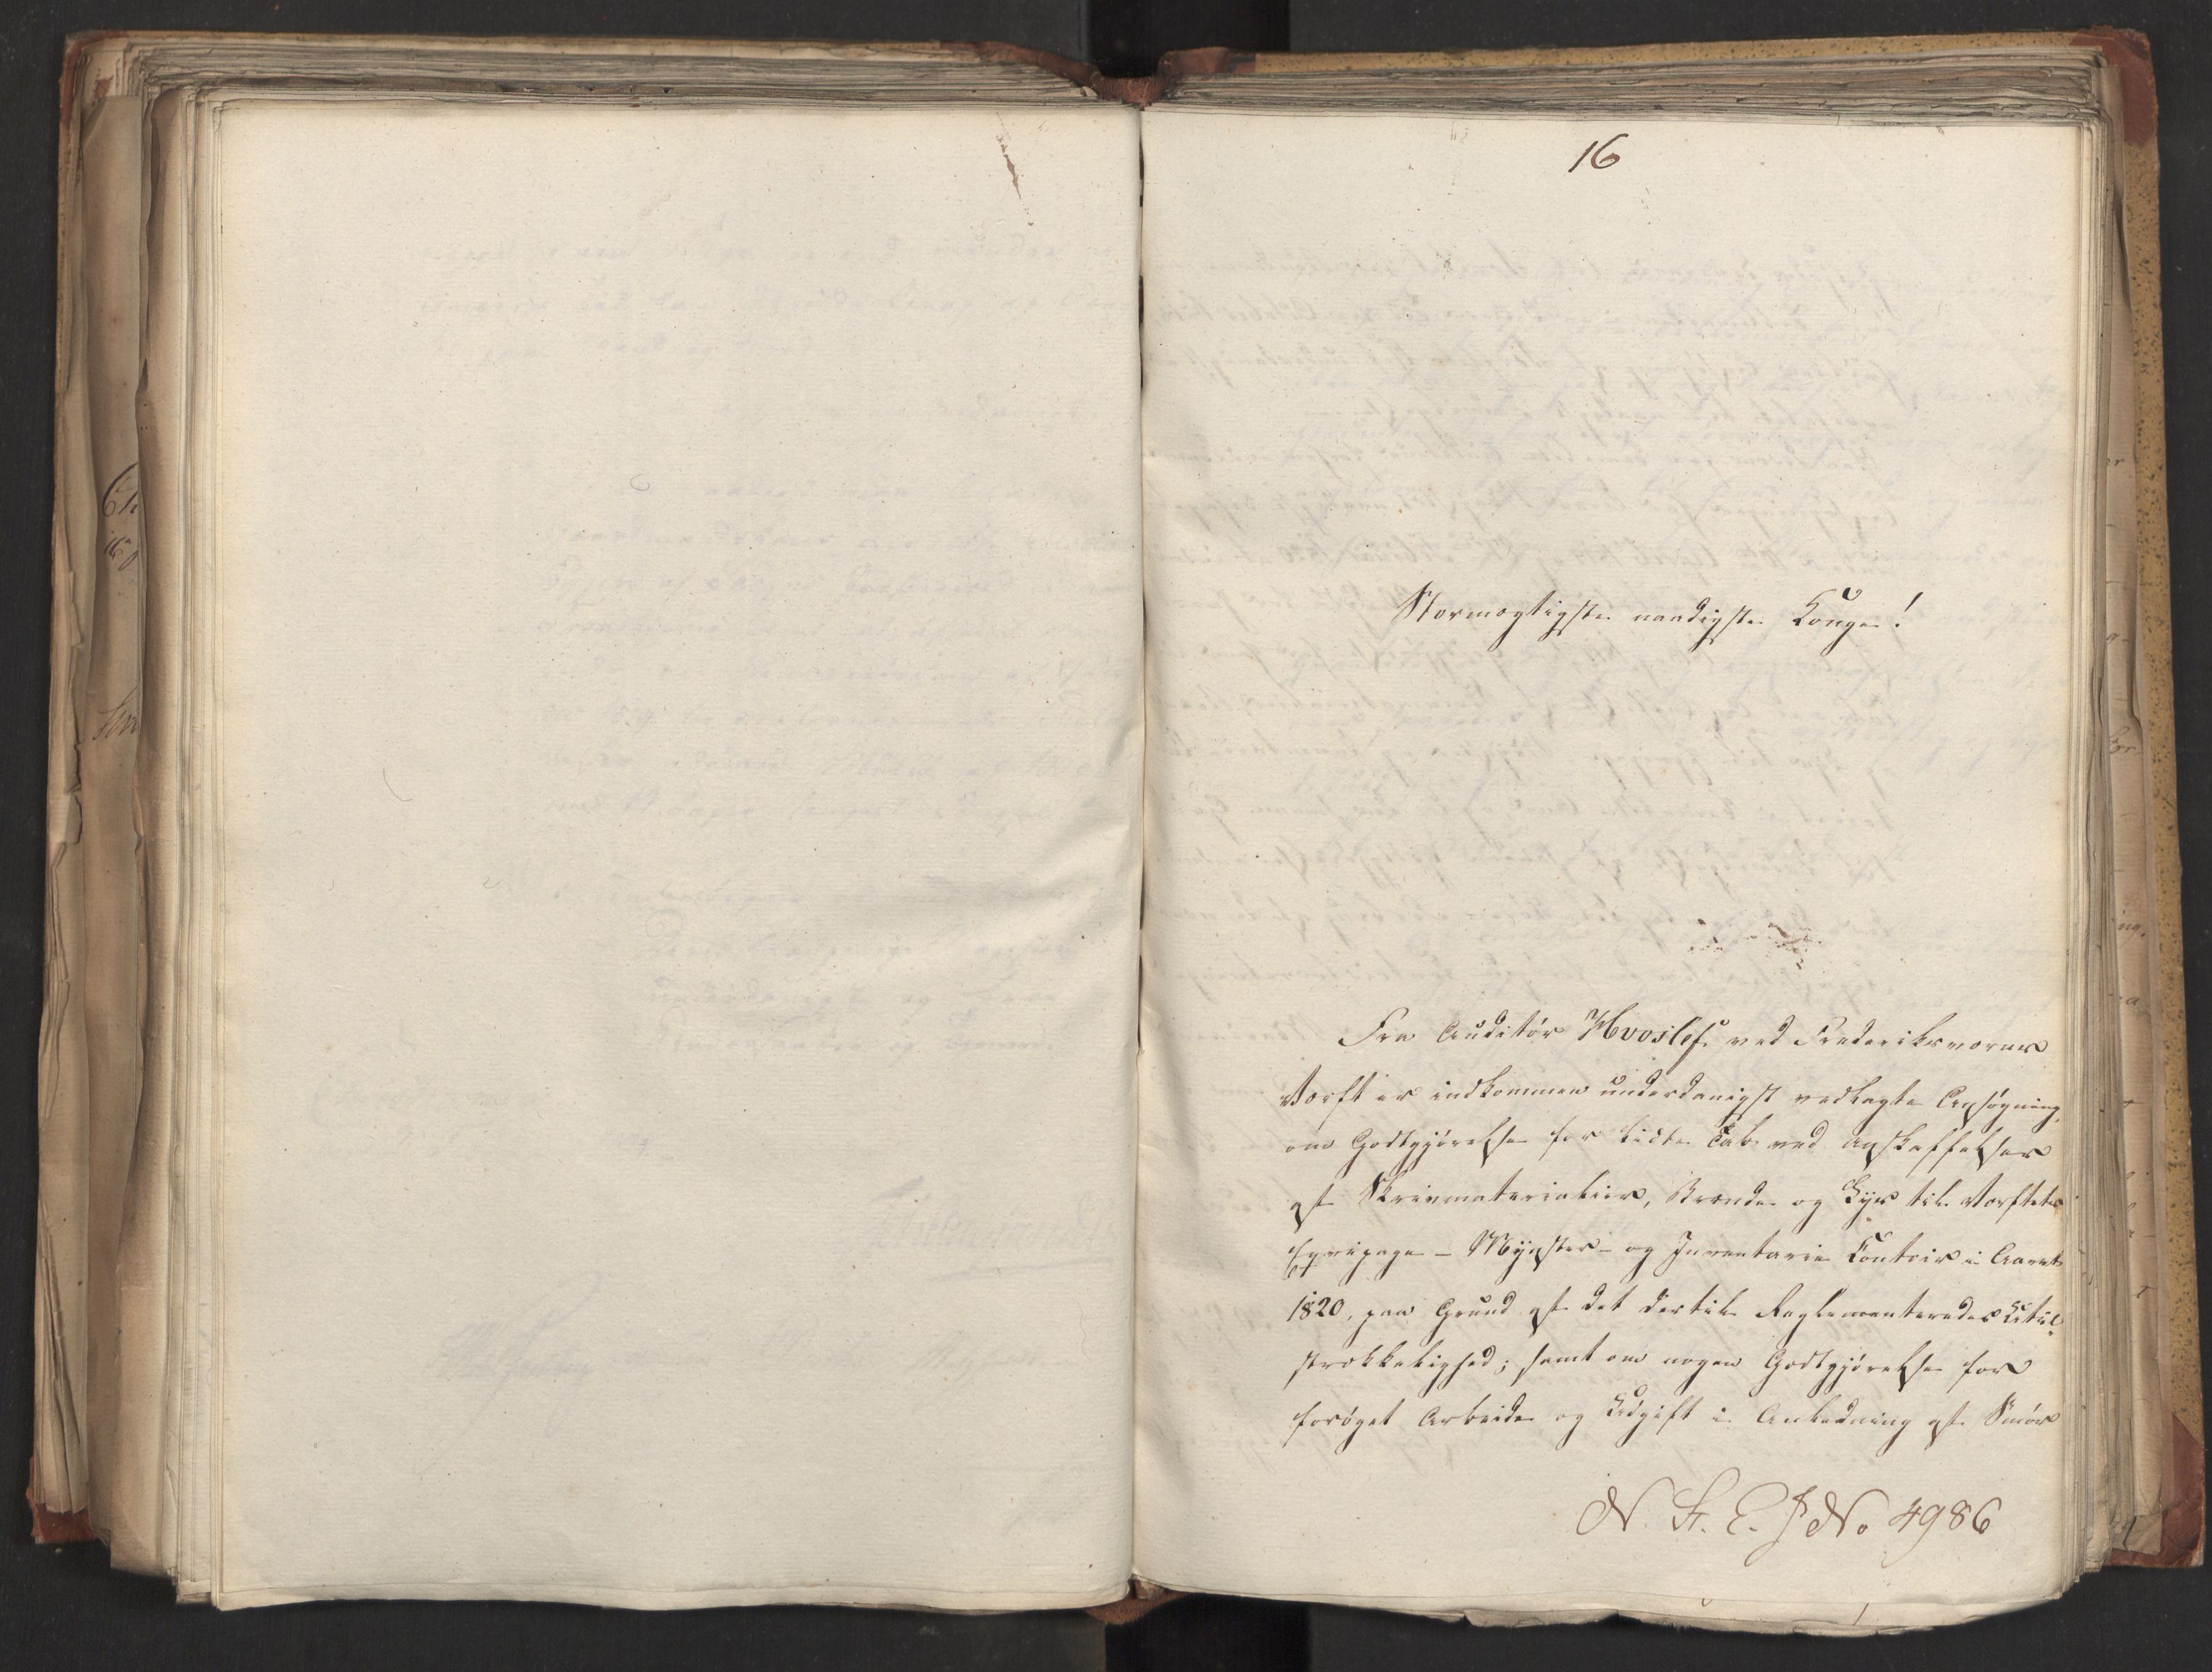 16
Stormægtigste naadigste Konge!
Fra Auditør Hvoslef ved Frederiksværns
Værft er indkommen underdanigst vedlagte Ansøgning
om Godtgjørelse for lidte Tab ved Anskaffelsen
af Skrivematerialier, Brænde og Lys til Værftets
Eqvipage- Mynster- og Inventarie Contoir i Aaret
1820, paa Grund af det dertil Reglementeredes Util-
strækkelighed; samt om nogen Godtgjørelse for
forøget Arbeide og Udgift i Anledning af
N. St. E. J No 4986